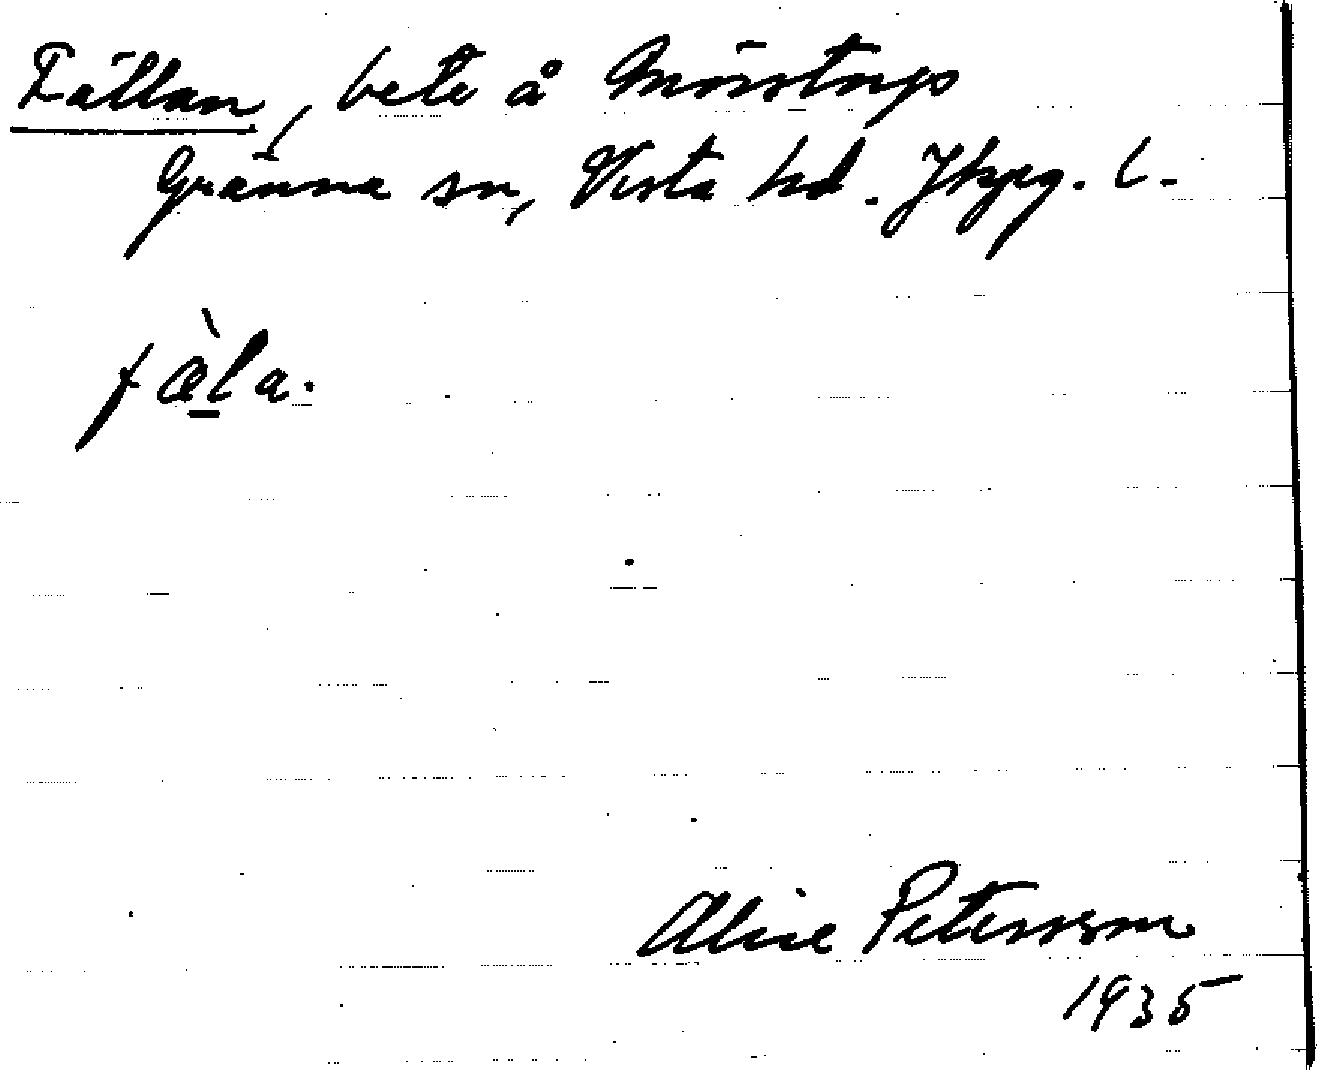 Fällan, bete å Mörstorp
Gränna sn, Vista hd. Jkpg. l.
fæ̀la.
Alice Petersson
1935